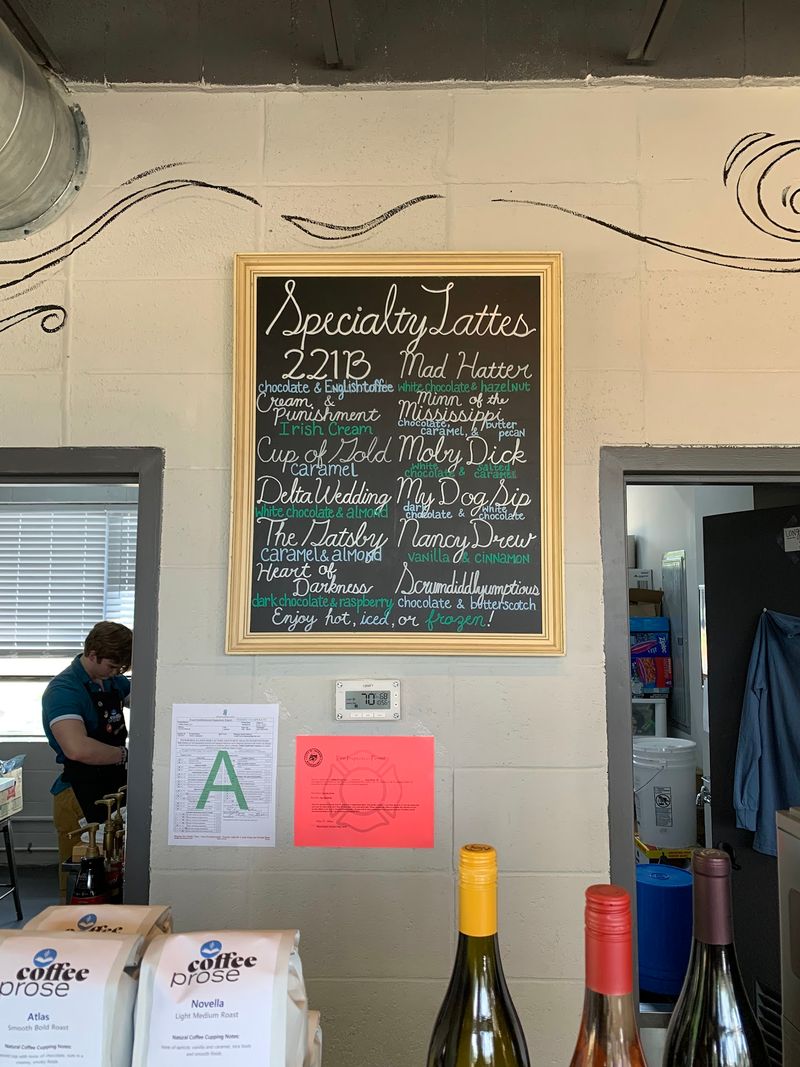 Specialty Lattes
221B
chocolate & English toffee
Cream &
Punishment
Irish Cream
Cup of Gold
caramel
Delta Wedding
white chocolate & almond
The Gatsby
caramel & almond
Heart of
Darkness
dark chocolate & raspberry
Mad Hatter
white chocolate & hazelnut
Minn of the
Mississippi
chocolate,
caramel, &
butter
pecan
Moby Dick
white
chocolate &
salted
caramel
My Dog Sip
dark
chocolate &
white
chocolate
Nancy Drew
vanilla & cinnamon
Scrumdiddlyumptious
chocolate & butterscotch
Enjoy hot, iced, or frozen!
70
68
A
Fire Prevention Permit
coffee
coffee
prose
Atlas
Smooth Bold Roast
Natural Coffee Cupping Notes:
coffee
prose
Novella
Light Medium Roast
Natural Coffee Cupping Notes:
and smooth finish